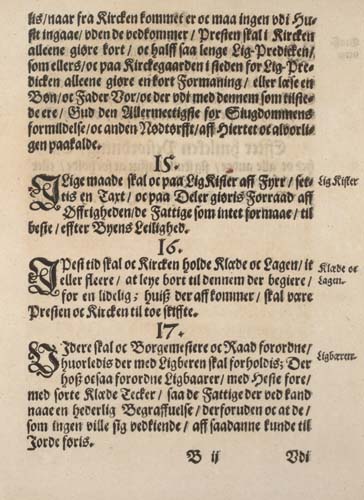 lis/naar fra Kircken kommet er oc maa ingen vdi Hu-
set ingaae/ vden de vedkommer/ Presten skal i Kircken
alleene giøre kort/ oc halff saa lenge Lig-Predicken/
som ellers/oc paa Kirckegaarden i steden for Lig-Pre-
dicken alleene giøre en kort Formaning/ eller læse en
Bøn/oc Fader Vor/oc der vdi med dennem som tilste-
de ere/ Gud den Allermectigste for Siugdommens
formildelse/oc anden Nødtorfft/aff Hiertet oc alvorli-
gen paakalde.
15.
ILige maade skal oc paa Lig Kister aff Fyrr/ set-
tis en Taxt/ oc paa Deler giøris Forraad aff
Øffrigheden/de Fattige som intet formaae/ til
beste/ effter Byens Leilighed.
Lig Kister
16.
IPest tid skal oc Kircken holde Klæde oc Lagen/ it
eller fleere/ at leye bort til dennem der begiere/
for en lidelig; huiß der aff kommer/ skal være
Presten oc Kircken til toe skiffte.
Klæde oc
Lagen.
17.
VIdere skal oc Borgemestere oc Raad forordne/
huorledis der med Ligberen skal forholdis; Der
hoß ocsaa forordne Ligbaarer/ med Heste fore/
med sorte Klæde Tecker/ saa de Fattige der ved kand
naae en hederlig Begraffuelse/ der foruden oc at de/
som ingen ville sig vedkiende/ aff saadanne kunde til
Jorde føris.
Ligbæren
B ij
Vdi